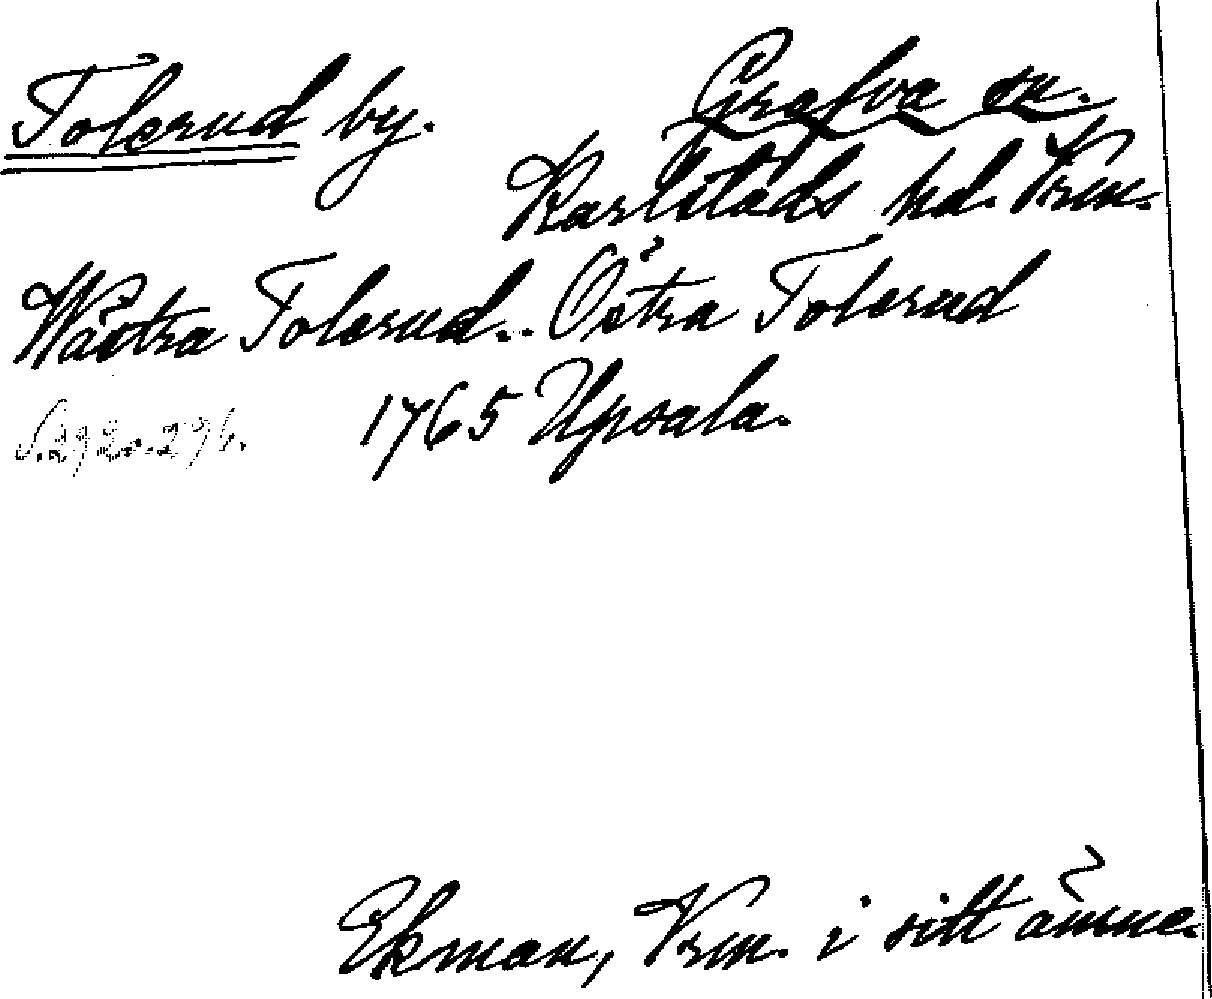 Tolerud by. Grafva sn.
Karlstads hd. Vrm.
Wästra Tolerud.. Östra Tolerud
S. 292 o. 296. 1765 Upsala.
Ekman, Vrm. i sitt ämne.